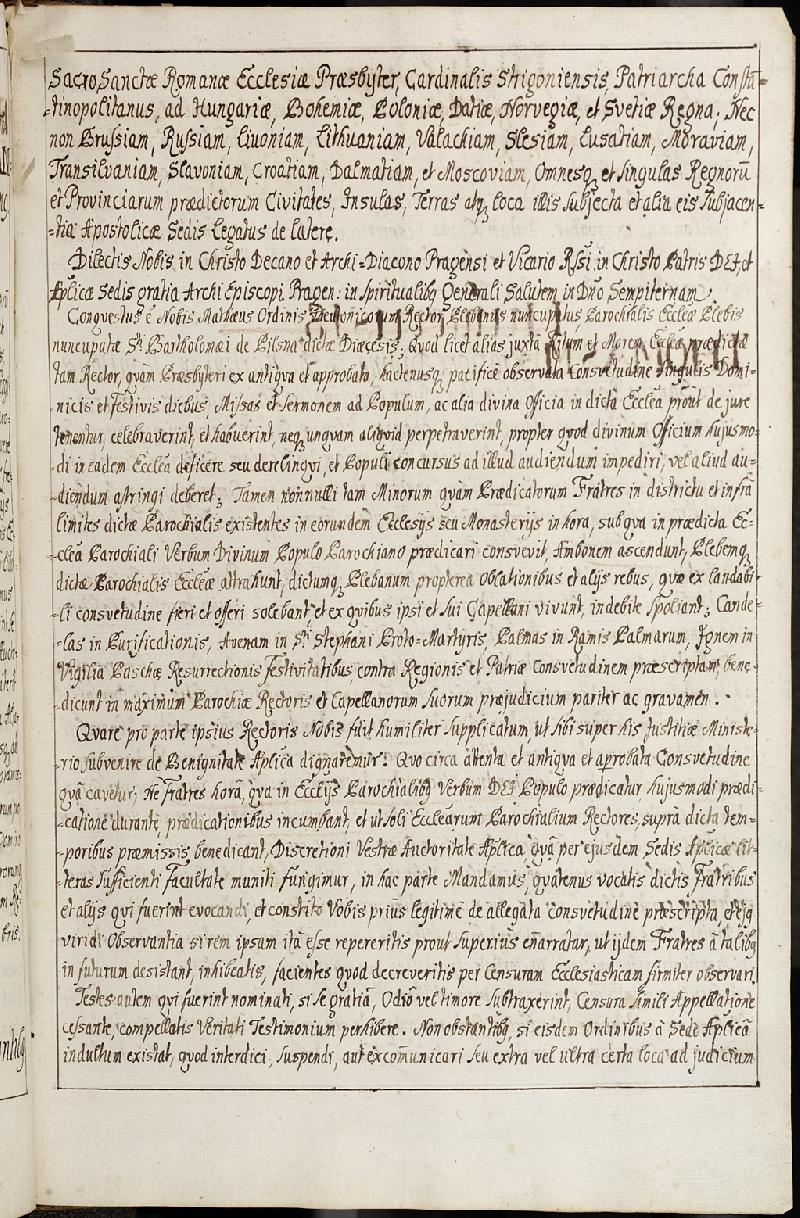 Sacro Sanctæ Romanæ Ecclesiæ Præsbyter, Cardinalis Strigoniensis, Patriarcha Consta=
=tinopolitanus, ad Hungariæ, Bohemiæ, Poloniæ, Datiæ, Norvegiæ, et Svetiæ Regna; Nec
non Prussiam, Russiam, Livoniam, Lithuaniam, Valachiam, Slesiam, Lusatiam, Moraviam,
Transilvaniam, Slavoniam, Croatiam, Dalmatiam, et Moscoviam, Omnesq, et singulas Regnorū
et Provinciarum prædictorum Civitates, Insulas, Terras atq, loca illis subjecta et alia eis subjacen=
=tia Apostolicæ Sedis Legatus de latere.
Dilectis Nobis in Christo Decano et Archi=Diacono Pragensi et Vicario Rssi in Christo Patris DEI, et
Aplicæ Sedis gratia Archi Episcopi Pragen: in Spiritualibq Generali Salutem in Dno Sempiternam.
Conqvestus ē Nobis Mathæus Ordinis Rector, Plebanus nuncupatus, Parochialis Eccleæ Plebis
nuncupatæ Sti Bartholomæi de Pilsna dictæ Diæcesis; Qvod licet alias juxta Ritum et Morem Eccleæ prædictæ
tam Rector, qvam Præsbyteri ex antiqva et approbata, hactenusq, pacificè observata Consvetudine singulis Domi=
=nicis et Festivis diebus, Missas et Sermonem ad Populum, ac alia divina Officia in dicta Ecclea prout de jure
tenentur, celebraverint, et habuerint, neq, unqvam aliqvid perpetraverint, propter qvod divinum Officium hujusmo=
=di in eadem Ecclea deficere seu derelinqvi, et Populi concursus ad illud audiendum impediri, vel aliud au=
=diendum astringi deberet; Tamen nonnulli tam Minorum qvàm Prædicatorum Fratres in districtu et infra
limites dictæ Parochialis existentes in eorundem Ecclesijs seu Monasterijs in hora, sub qva in prædicta Ec=
=clea Parochiali Verbum Divinum Populo Parochiano prædicari consvevit, Ambonem ascendunt, Plebemq,
dictæ Parochialis Eccleæ attrahunt, dictumq, Plebanum propterea oblationibus et alijs rebus, qvæ ex laudabi=
=li consvetudine fieri et offeri solebant, et ex qvibus ipsi et sui Capellani vivunt, indebite spoliant; Cande=
=las in Purificationis, Avenam in Sti Stephani Proto=Martyris, Palmas in Ramis Palmarum, Ignem in
Vigilia Paschæ Resurrectionis Festivitatibus contra Regionis et Patriæ Consvetudinem præscriptam bene=
=dicunt in maximum Parochiæ Rectoris et Capellanorum suorum præjudicium pariter ac gravamen.
Qvare pro parte ipsius Rectoris Nobis fuit humiliter supplicatum, ut sibi super his Justitiæ Ministe=
=rio subvenire de Benignitate Aplica dignaremur. Qvo circa attenta et antiqva et aprobata Consvetudine
qvâ cavetur, ne Fratres horâ, qva in Ecclijs Parochialibq Verbum DEI Populo prædicatur, hujusmodi prædi=
=catione durante, prædicationibus incumbant, et ut soli Ecclearum Parochialium Rectores, suprà dicta tem=
=poribus præmissis benedicant, Discretioni Vestræ Auctoritate Aplica, qvâ per ejusdem Sedis Aplicæ lit=
=teras sufficienti facultate muniti fungimur, in hac parte Mandamus, qvatenus vocatis dictis Fratribus
et alijs qvi fuerint evocandi, et constito Vobis priùs legitimè de allegata consvetudine præscripta, etejq
viridi Observantia si rem ipsam ità esse repereritis prout superius enarratur, ut ijdem Fratres à talibq
in futurum desistant, inhibeatis, facientes qvod decreveritis per Censuram Ecclesiasticam firmiter observari.
Testes autem qvi fuerint nominati, si se gratiâ, Odiô vel timore subtraxerint, Censura simili Appellatione
cessante, compellatis Veritati Testimonium perhibere. Non obstantibq, si eisdem Ordinibus à Sede Aplicâ
indultum existat, qvod interdici, suspendi, aut excomunicari seu extra vel ultra certa loca ad judicium